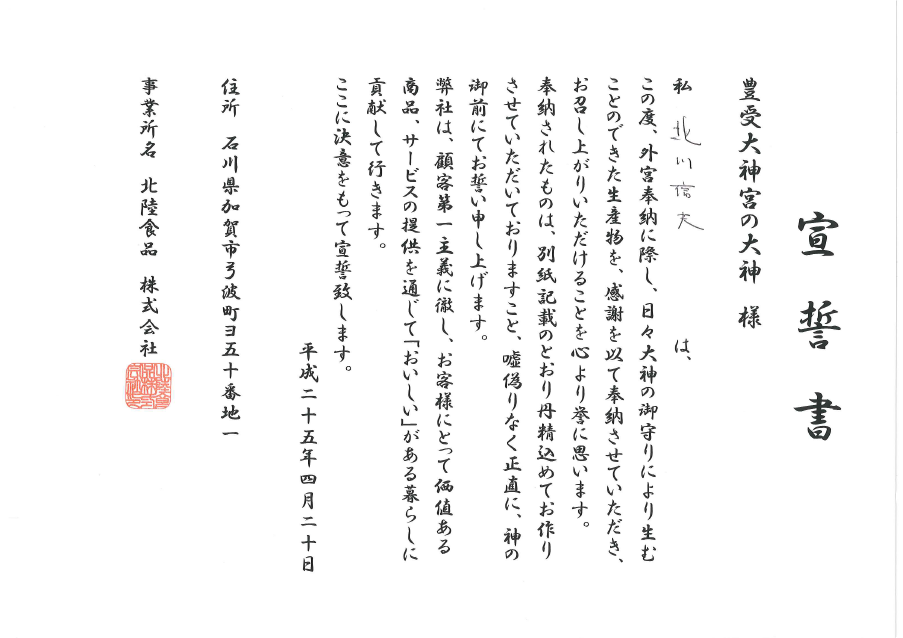 宣誓書
豊受大神宮の大神　様
私　北川信夫　は、
この度、外宮奉納に際し、日々大神の御守りにより生む
ことのできた生産物を、感謝を以て奉納させていただき、
お召し上がりいただけることを心より誉に思います。
奉納されたものは、別紙記載のとおり丹精込めてお作り
させていただいておりますこと、嘘偽りなく正直に、神の
御前にてお誓い申し上げます。
弊社は、顧客第一主義に徹し、お客様にとって価値ある
商品、サービスの提供を通じて「おいしい」がある暮らしに
貢献して行きます。
ここに決意をもって宣誓致します。
平成二十五年四月二十日
住所　石川県加賀市弓波町ヨ五十番地一
事業所名　北陸食品　株式会社